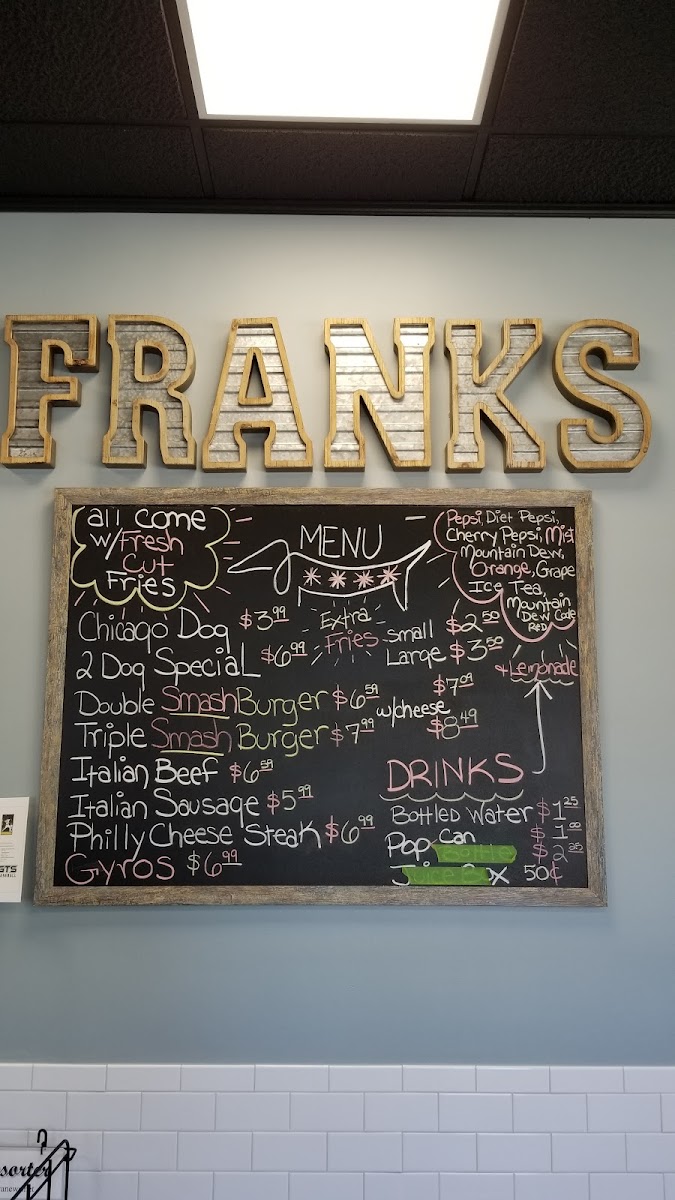 FRANKS
all come
w/Fresh
Cut
Fries
MENU
Pepsi, Diet Pepsi,
Cherry Pepsi, Mist
Mountain Dew,
Orange, Grape
Ice Tea,
Mountain
Dew Code
Red
+ Lemonade
Chicago Dog $3.99
2 Dog Special $6.99
Extra
Fries
Small $2.50
Large $3.50
Double Smash Burger $6.59
Triple Smash Burger $7.99
w/cheese
$7.09
$8.49
Italian Beef $6.59
Italian Sausage $5.99
Philly Cheese Steak $6.99
Gyros $6.99
DRINKS
Bottled Water $1.25
Pop Can $1.00
Bottle $2.25
Juice Box 50¢
sorter